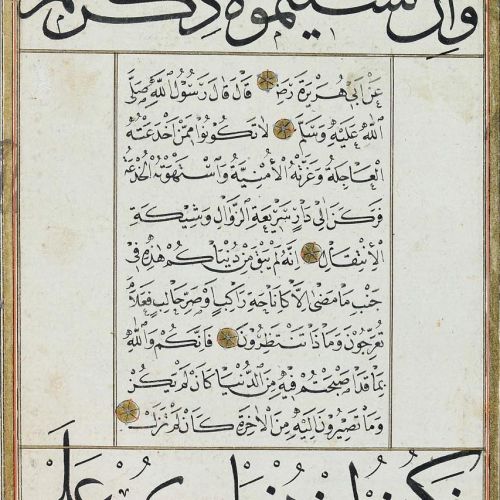 وان نسيتموه ذكركم
عَنْ اَبِي هُرَيْرَةَ رَضِ قَالَ قَالَ رَسُولُ اللّٰهِ صَلَّى
اللّٰهُ عَلَيْهِ وَسَلَّمَ لَا تَكُونُوا مِمَّنْ اخْدَعَتْهُ
الْعَاجِلَةُ وَغَرَّتْهُ الْأُمْنِيَّةُ وَاسْتَهْوَتْهُ الْخُدْعَةُ
فَرَكَنَ اِلٰى دَارٍ سَرِيعَةِ الزَّوَالِ وَشِيكَةِ
الْاِنْتِقَالِ اِنَّهُ لَمْ يَبْقَ مِنْ دُنْيَاكُمْ هٰذِهِ فِي
جَنْبِ مَا مَضٰى اِلَّا كَاِنَاخَةِ رَاكِبٍ اَوْ صَرِّ حَالِبٍ فَعَلَامَ
تُعَرِّجُونَ وَمَاذَا تَنْتَظِرُونَ فَاِنَّكُمْ وَاللّٰهِ
بِمَا قَدْ اَصْبَحْتُمْ فِيهِ مِنَ الدُّنْيَا كَاَنْ لَمْ تَكُنْ
وَمَا تَصِيرُونَ اِلَيْهِ مِنَ الْاٰخِرَةِ كَاَنْ لَمْ تَزَلْ